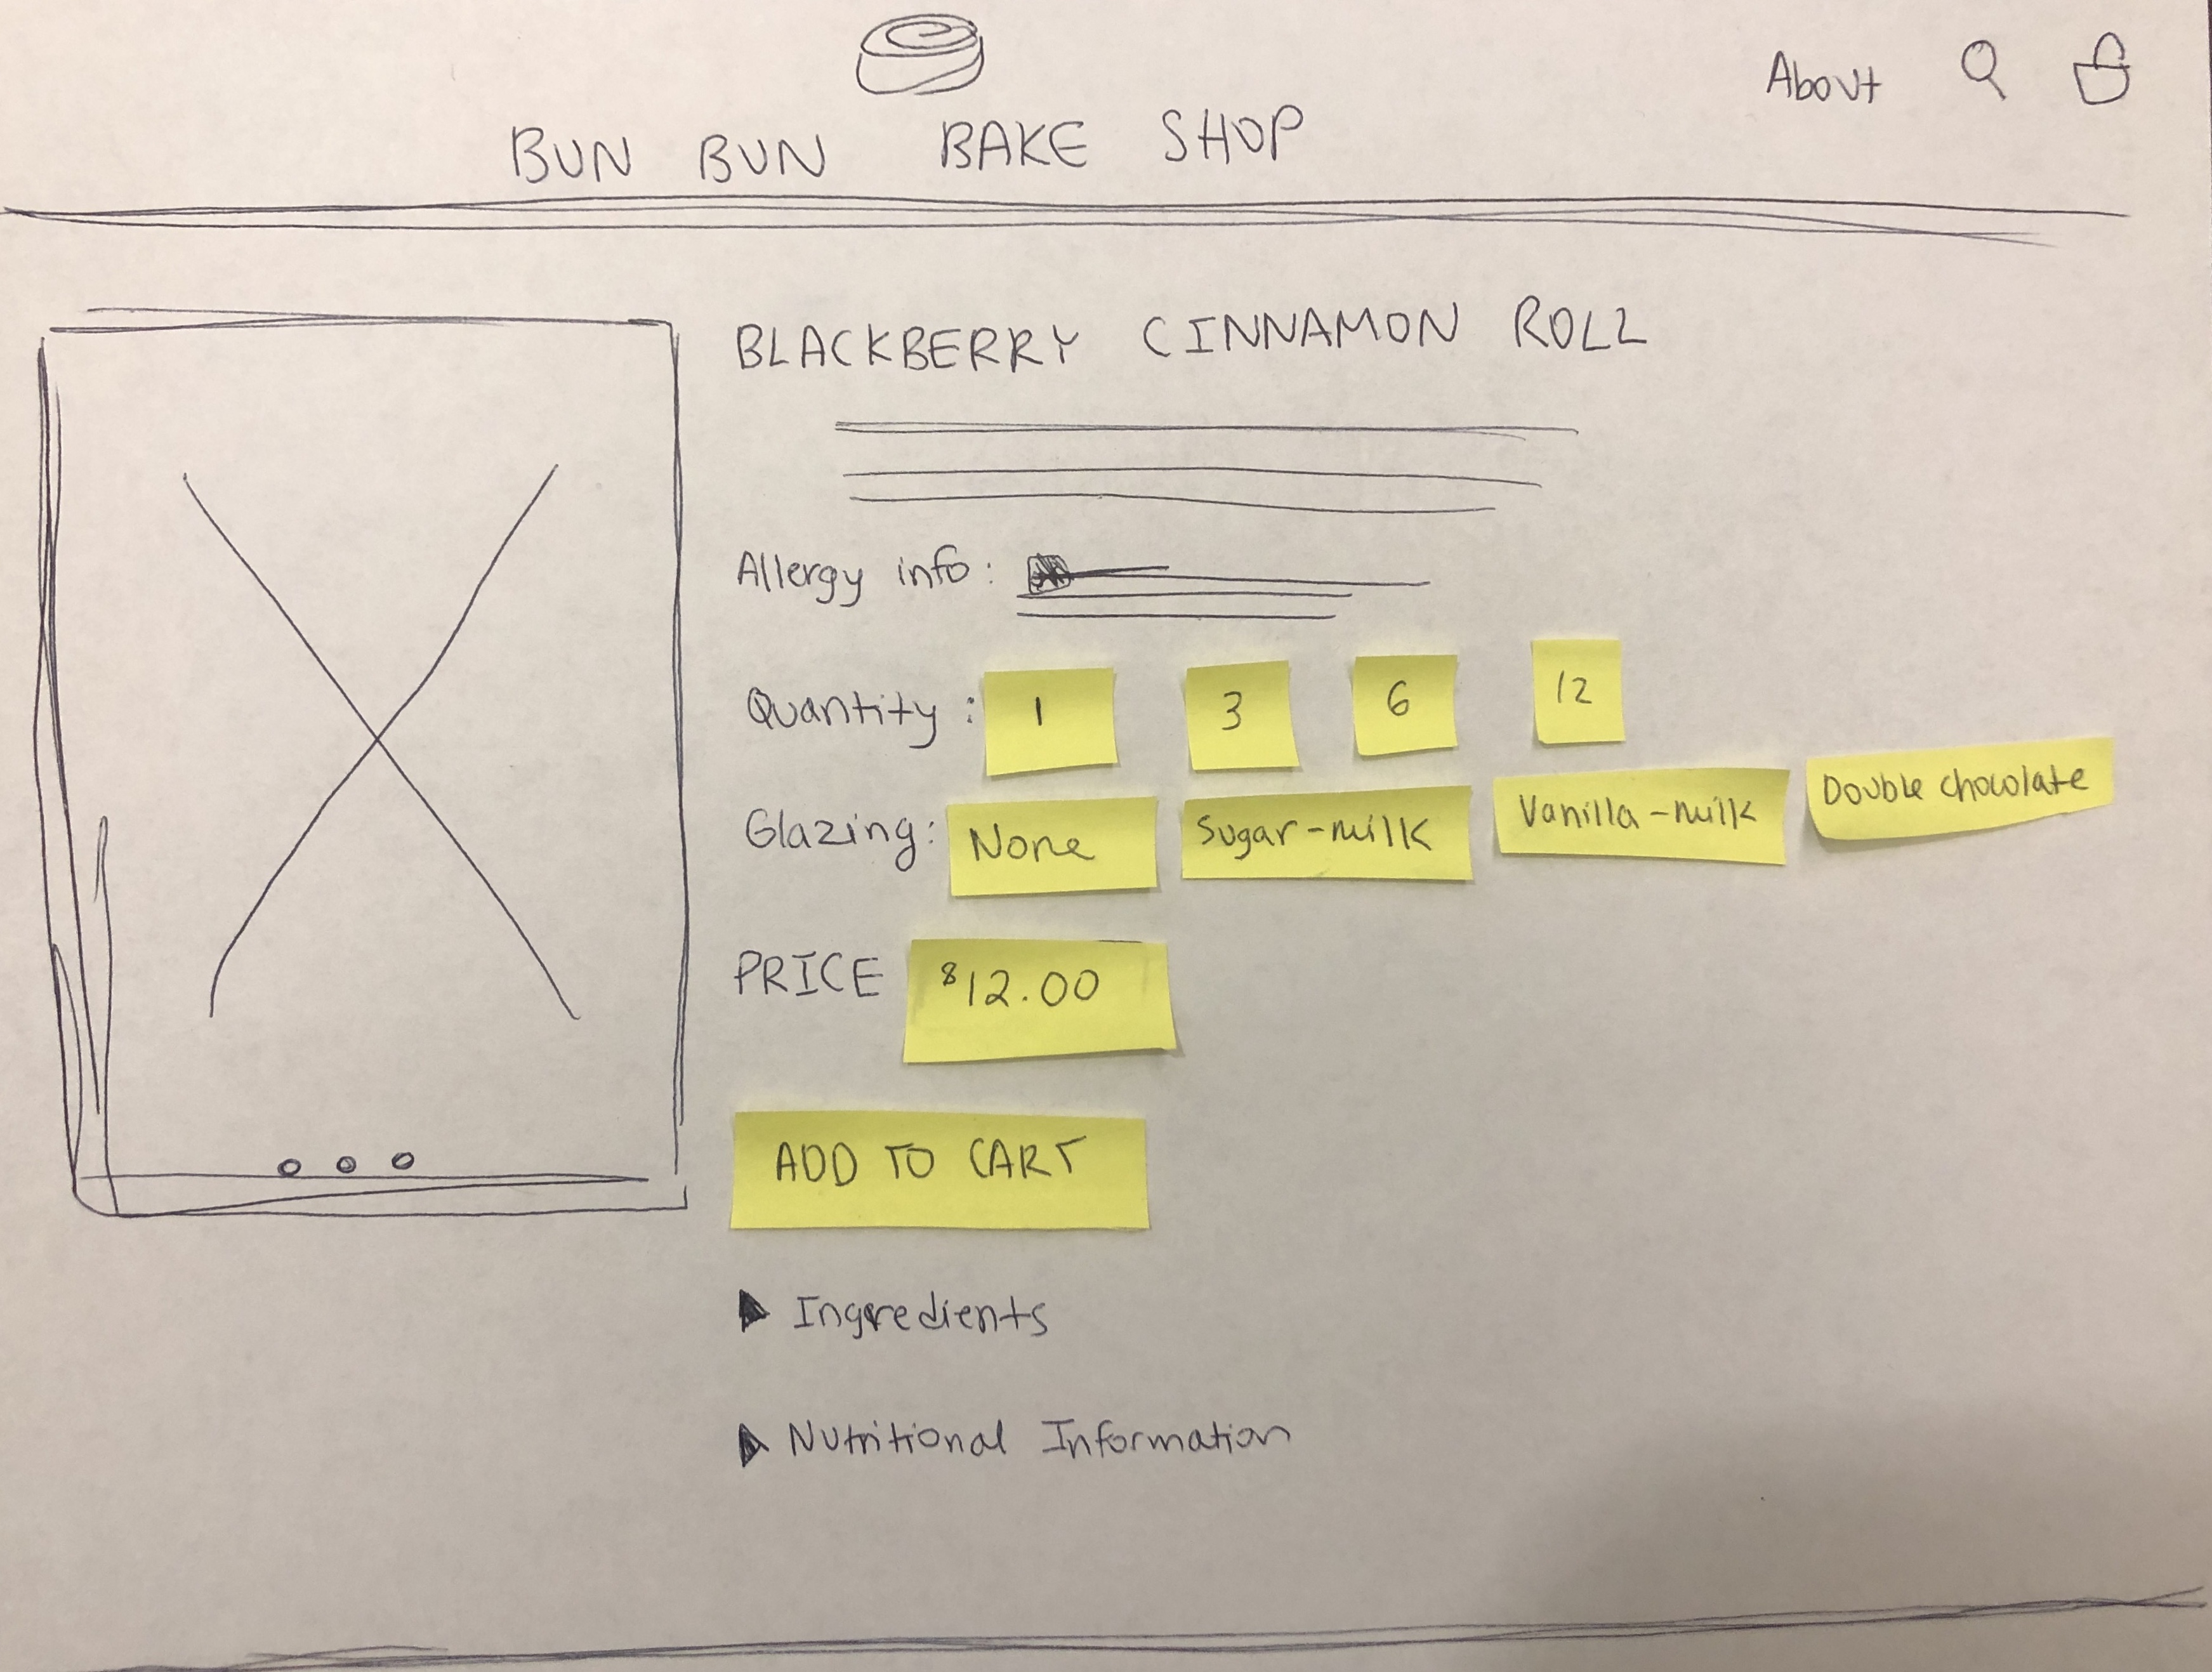 About
BUN BUN BAKE SHOP
BLACKBERRY CINNAMON ROLL
Allergy info:
Quantity: 1 3 6 12
Glazing: None Sugar-milk Vanilla-milk Double chocolate
PRICE $12.00
ADD TO CART
Ingredients
Nutritional Information